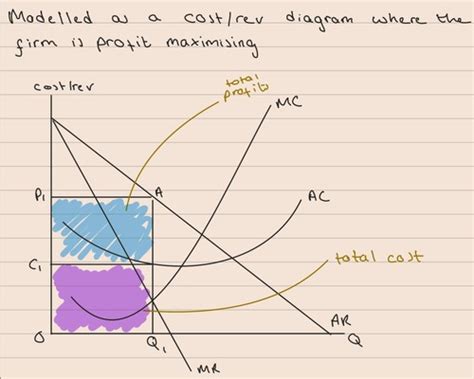 Modelled as a cost/rev diagram where the
firm is profit maximising
cost/rev
total
profits
MC
P1
A
AC
C1
total cost
AR
O
Q1
Q
MR